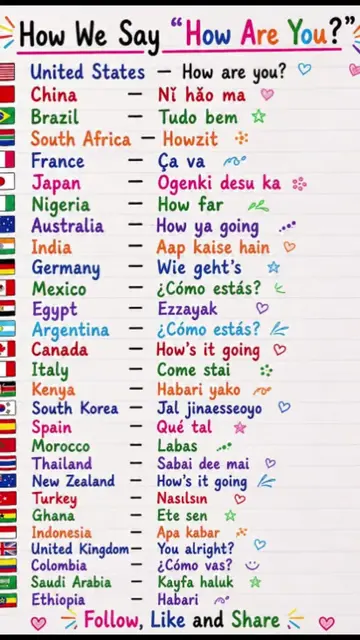 How We Say "How Are You?"
United States — How are you?
China — Nǐ hǎo ma
Brazil — Tudo bem
South Africa — Howzit
France — Ça va
Japan — Ogenki desu ka
Nigeria — How far
Australia — How ya going
India — Aap kaise hain
Germany — Wie geht's
Mexico — ¿Cómo estás?
Egypt — Ezzayak
Argentina — ¿Cómo estás?
Canada — How's it going
Italy — Come stai
Kenya — Habari yako
South Korea — Jal jinaesseoyo
Spain — Qué tal
Morocco — Labas
Thailand — Sabai dee mai
New Zealand — How's it going
Turkey — Nasılsın
Ghana — Ete sen
Indonesia — Apa kabar
United Kingdom — You alright?
Colombia — ¿Cómo vas?
Saudi Arabia — Kayfa haluk
Ethiopia — Habari
Follow, Like and Share